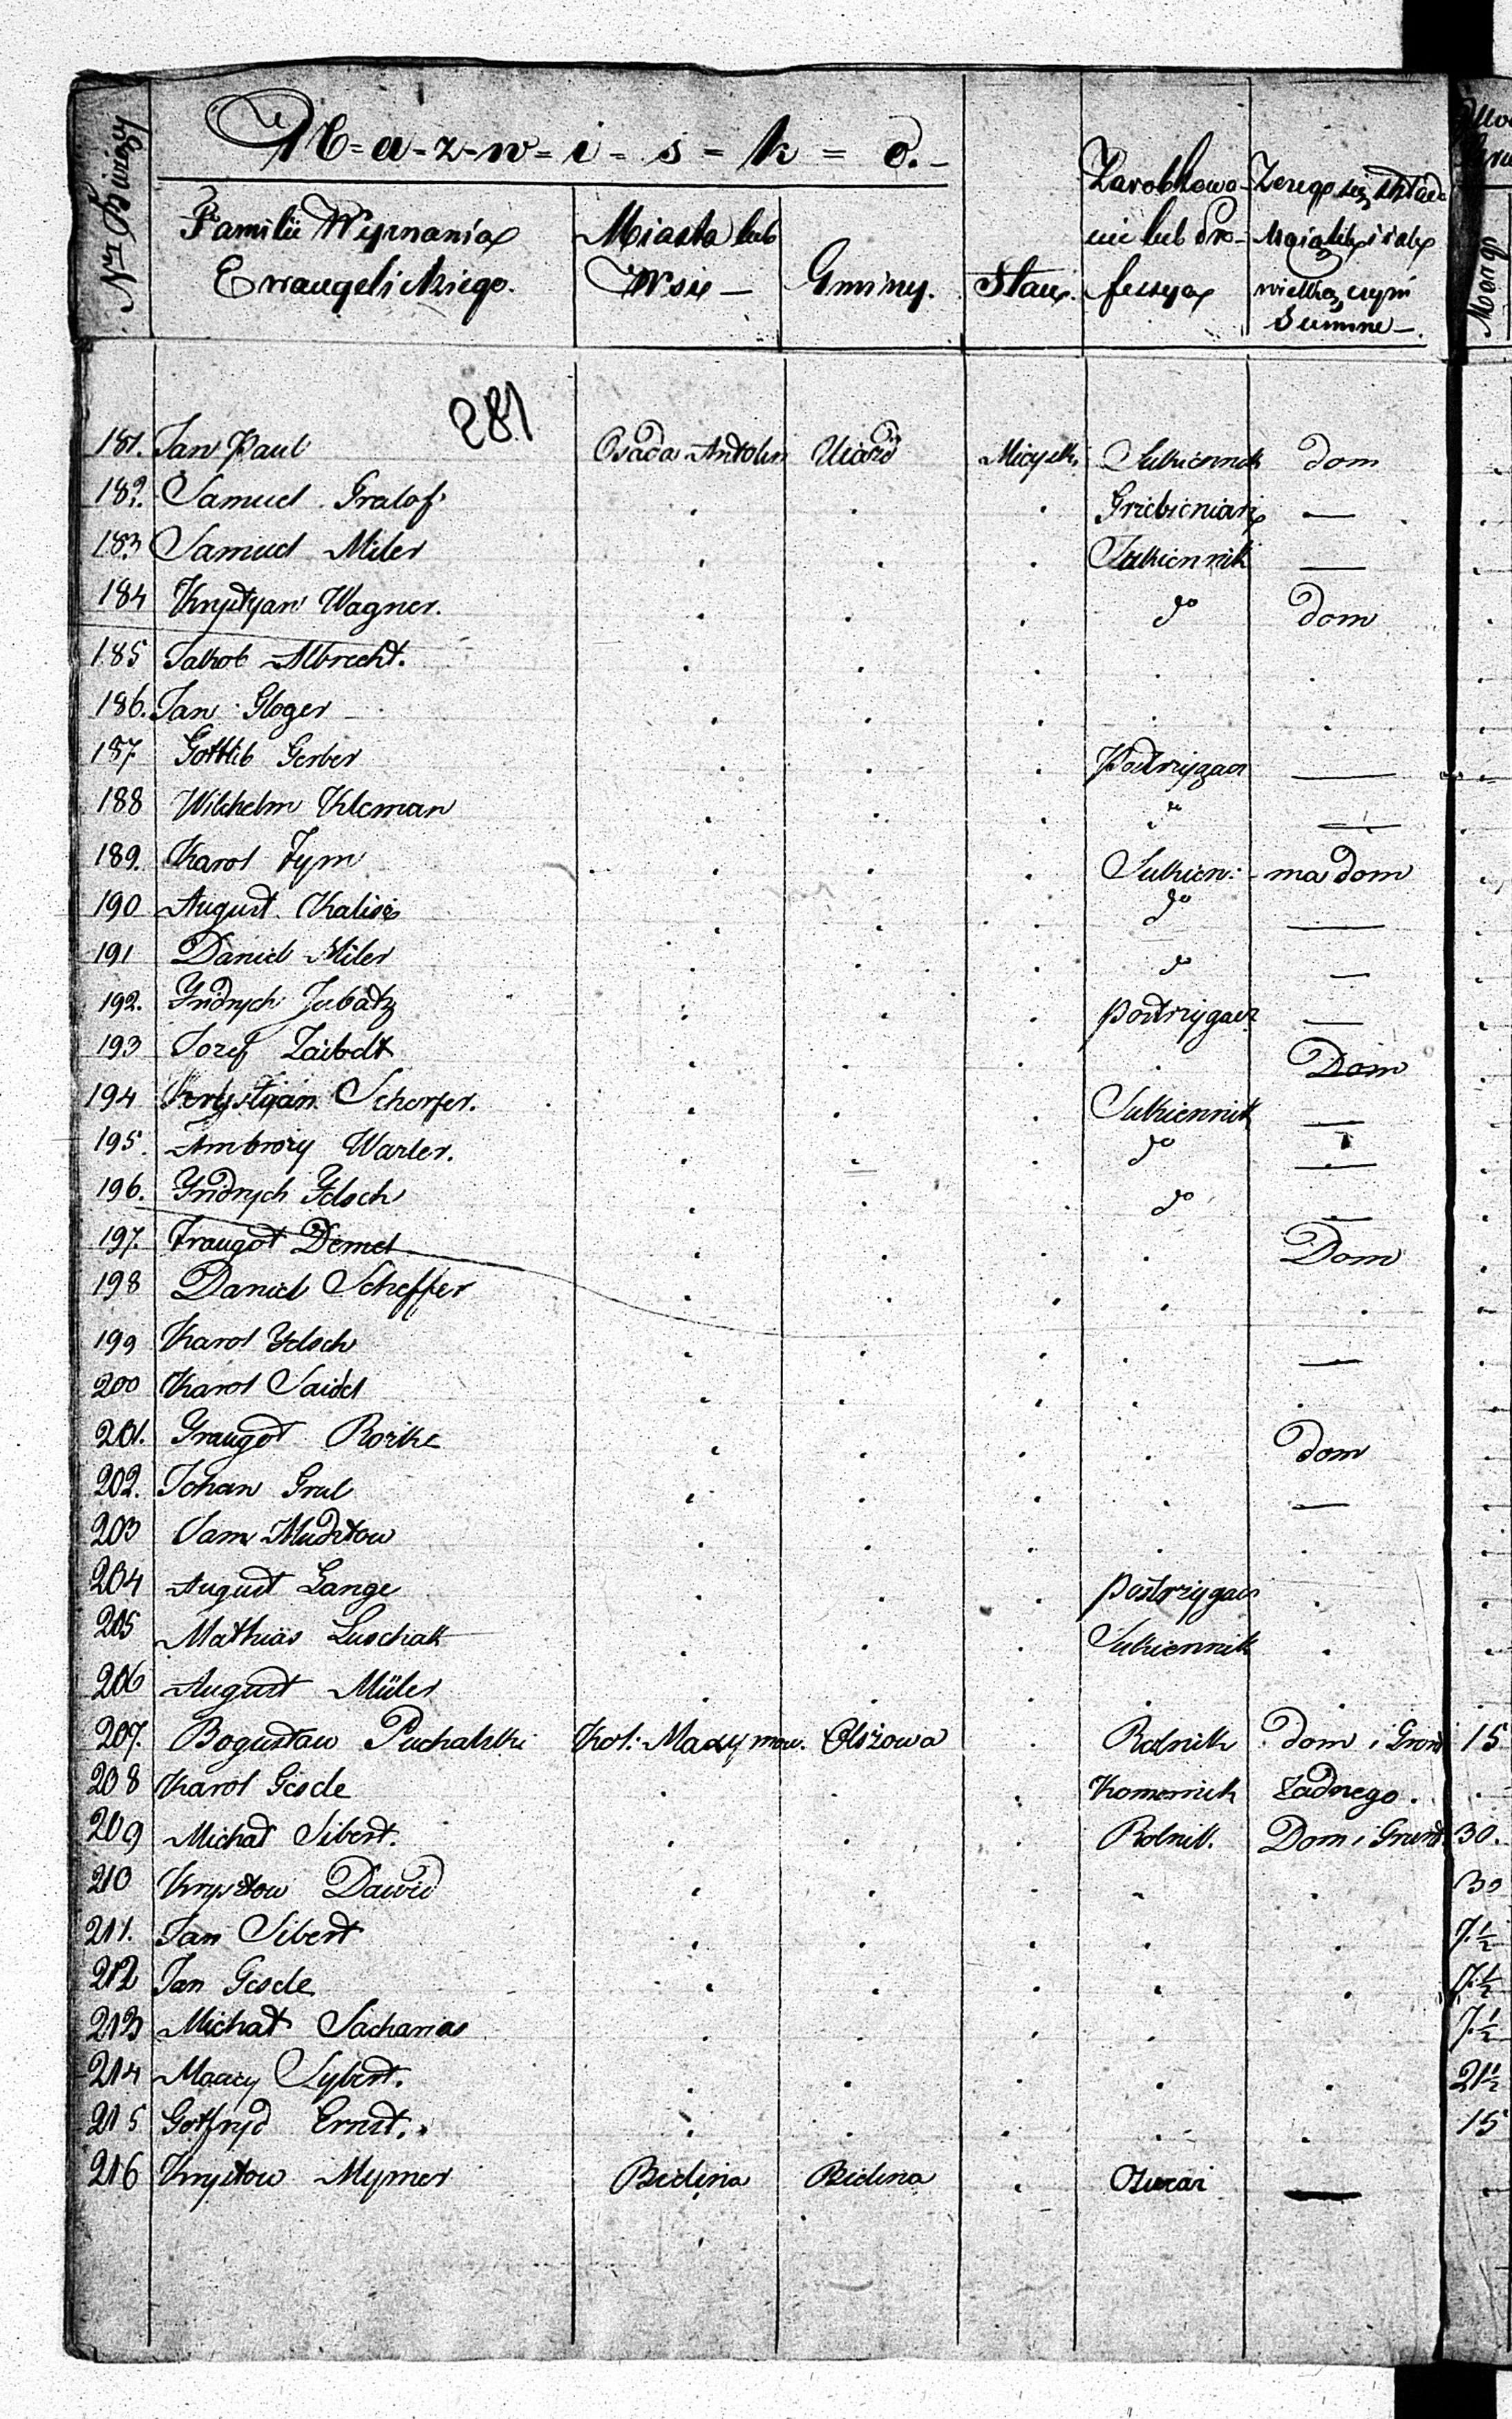 Nr Bieżący
N-a-z-w-i-s-k-o.-
Familii Wyznania Ewangelickiego.
Miasta lub Wsie -
Gminy.
Stan.
Zarobkowanie lub Professya
Morgi
281
181. Jan Paul Osada Antolin Uiazd Mieyski Sukiennik dom
182. Samuel Gralof . . . Grzebieniarz —
183 Samuel Miler . . . Sukiennik —
184 Krystyan Wagner. . . . do dom
185 Jakob Albrecht. . . . . .
186. Jan Gloger . . . . .
187 Gottlib Gerber . . . Postrzygacz —
188 Wilchelm Kleman . . . " —
189. Karol Tym . . . Sukien: ma dom
190 August Kalisz . . . do —
191 Daniel Miler . . . do —
192. Frydrych Jubatz . . . postrzygacz —
193 Jozef . . . . Dom
194 Krystyan Scherfer. . . . Sukiennik —
195. Ambroży Warler. . . . do —
196. Frydrych Jelsch . . . do —
197. Traugot Demel . . . . Dom
198 Daniel Scheffer . . . . .
199 Karol Jelsch . . . . —
200 Karol Saidel . . . . .
201. Traugot . . . . dom
202. Johan Gral . . . . —
203 . . . . .
204 August Lange . . . postrzygacz .
205 Mathias Luschak . . . Sukiennik .
206 August Müler . . . . .
207. Bogusław Puchalski Kol: Maxymow. Olszowa . Rolnik dom i Gront 15
208 Karol Gesde . . . Komornik żadnego. .
209 Michał Sibert. . . . Rolnik. Dom i Grunt 30.
210 Krysztow Dawid . . . . 30
211. Jan Sibert . . . . . 7½
212 Jan Gesde . . . . . 7½
213 Michał Sacharias . . . . 7½
214 Maciey Sybert. . . . . . 21½
215 Gotfryd Ernst. . . . . . 15
216 Krysztow Mymer Będzina Będzina . Owczarz —